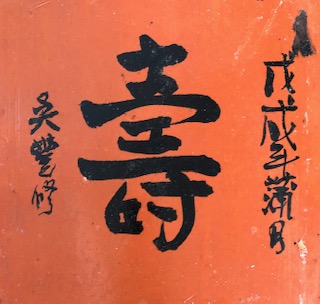 戊戌年蒲月
壽
吳豐修